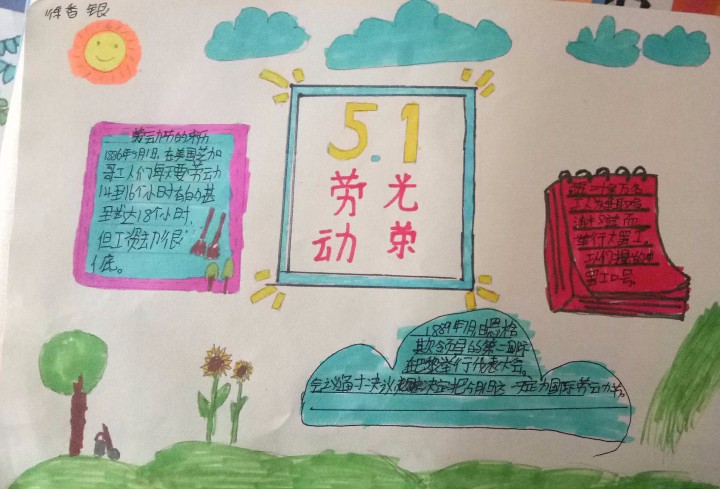 香银
5.1
劳光
动荣
劳动节的来历
1886年5月1日,在美国芝加
哥工人们每天要劳动
14到16个小时有的甚
至长达18个小时,
但工资却很
低。
二十余万名
工人为
而
举行大罢工,
工人们提出的
罢工口号,
1889年7月
领导的第一国际
在巴黎举行代表大会。
会议通过决议决定把5月1日这一天定为国际劳动节。